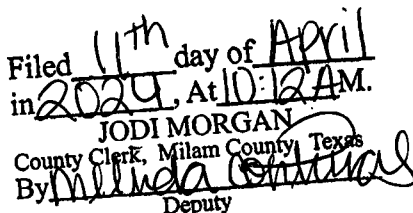 Filed 11th day of April
in 2024, At 10:12 AM.
JODI MORGAN
County Clerk, Milam County, Texas
By Melinda Contreras
Deputy